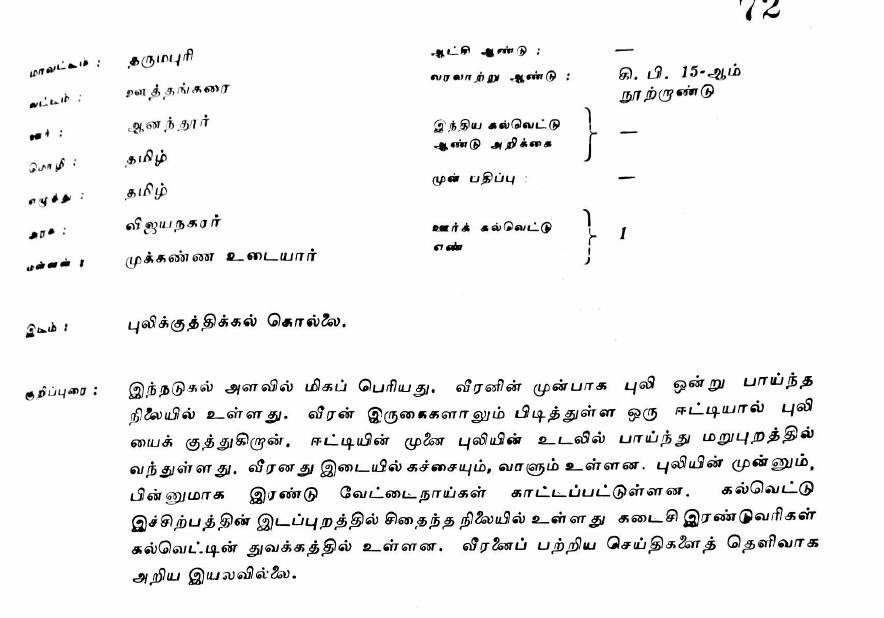 72
மாவட்டம் : தருமபுரி ஆட்சி ஆண்டு : —
வட்டம் : ஊத்தங்கரை வரலாற்று ஆண்டு : கி. பி. 15-ஆம் நூற்றாண்டு
ஊர் : ஆனந்தூர் இந்திய கல்வெட்டு ஆண்டு அறிக்கை } —
மொழி : தமிழ்
எழுத்து : தமிழ் முன் பதிப்பு : —
அரசு : விஜயநகரர் ஊர்க் கல்வெட்டு எண் } 1
மன்னன் : முக்கண்ண உடையார்
இடம் : புலிக்குத்திக்கல் கொல்லை.
குறிப்புரை : இந்நடுகல் அளவில் மிகப் பெரியது. வீரனின் முன்பாக புலி ஒன்று பாய்ந்த
நிலையில் உள்ளது. வீரன் இருகைகளாலும் பிடித்துள்ள ஒரு ஈட்டியால் புலி
யைக் குத்துகிறான். ஈட்டியின் முனை புலியின் உடலில் பாய்ந்து மறுபுறத்தில்
வந்துள்ளது. வீரனது இடையில் கச்சையும், வாளும் உள்ளன. புலியின் முன்னும்,
பின்னுமாக இரண்டு வேட்டைநாய்கள் காட்டப்பட்டுள்ளன. கல்வெட்டு
இச்சிற்பத்தின் இடப்புறத்தில் சிதைந்த நிலையில் உள்ளது கடைசி இரண்டுவரிகள்
கல்வெட்டின் துவக்கத்தில் உள்ளன. வீரனைப் பற்றிய செய்திகளைத் தெளிவாக
அறிய இயலவில்லை.